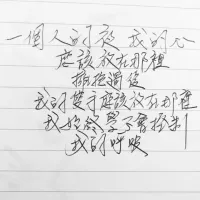 一個人的夜 我的心
應該放在那裡
擁抱過後
我的雙手應該放在那裡
我始終學不會控制
我的呼吸